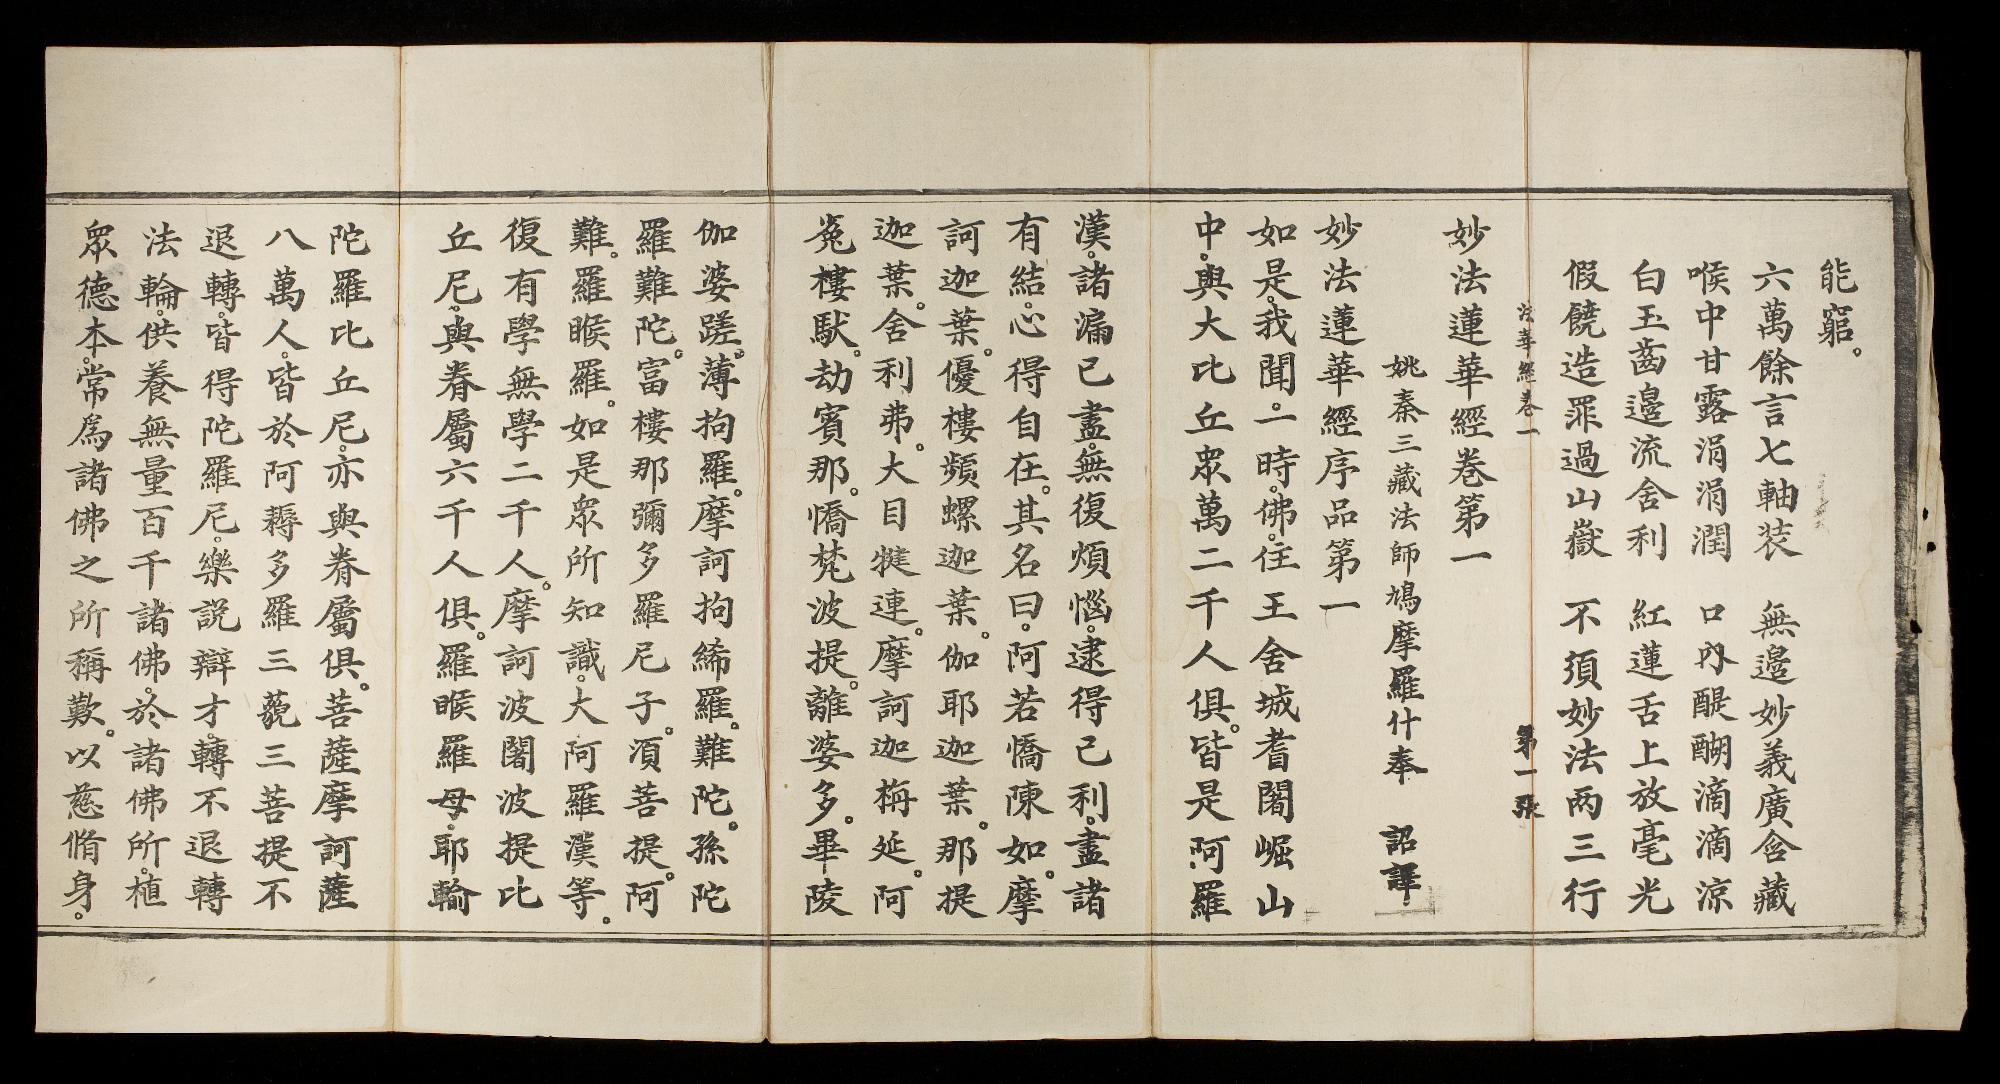 能窮。
六萬餘言七軸裝　無邊妙義廣含藏
喉中甘露涓涓潤　口內醍醐滴滴涼
白玉齒邊流舍利　紅蓮舌上放毫光
假饒造罪過山嶽　不須妙法兩三行
法華經卷一　第一張
妙法蓮華經卷第一
姚秦三藏法師鳩摩羅什奉　詔譯
妙法蓮華經序品第一
如是。我聞。一時。佛。住王舍城耆闍崛山
中。與大比丘眾萬二千人俱。皆是阿羅
漢。諸漏已盡。無復煩惱。逮得己利。盡諸
有結。心得自在。其名曰。阿若憍陳如。摩
訶迦葉。優樓頻螺迦葉。伽耶迦葉。那提
迦葉。舍利弗。大目犍連。摩訶迦栴延。阿
㝹樓馱。劫賓那。憍梵波提。離婆多。畢陵
伽婆蹉。薄拘羅。摩訶拘絺羅。難陀。孫陀
羅難陀。富樓那彌多羅尼子。須菩提。阿
難。羅睺羅。如是眾所知識。大阿羅漢等。
復有學無學二千人。摩訶波闍波提比
丘尼。與眷屬六千人俱。羅睺羅母。耶輸
陀羅比丘尼。亦與眷屬俱。菩薩摩訶薩
八萬人。皆於阿耨多羅三藐三菩提不
退轉。皆得陀羅尼。樂說辯才。轉不退轉
法輪。供養無量百千諸佛。於諸佛所。植
眾德本。常爲諸佛之所稱歎。以慈脩身。